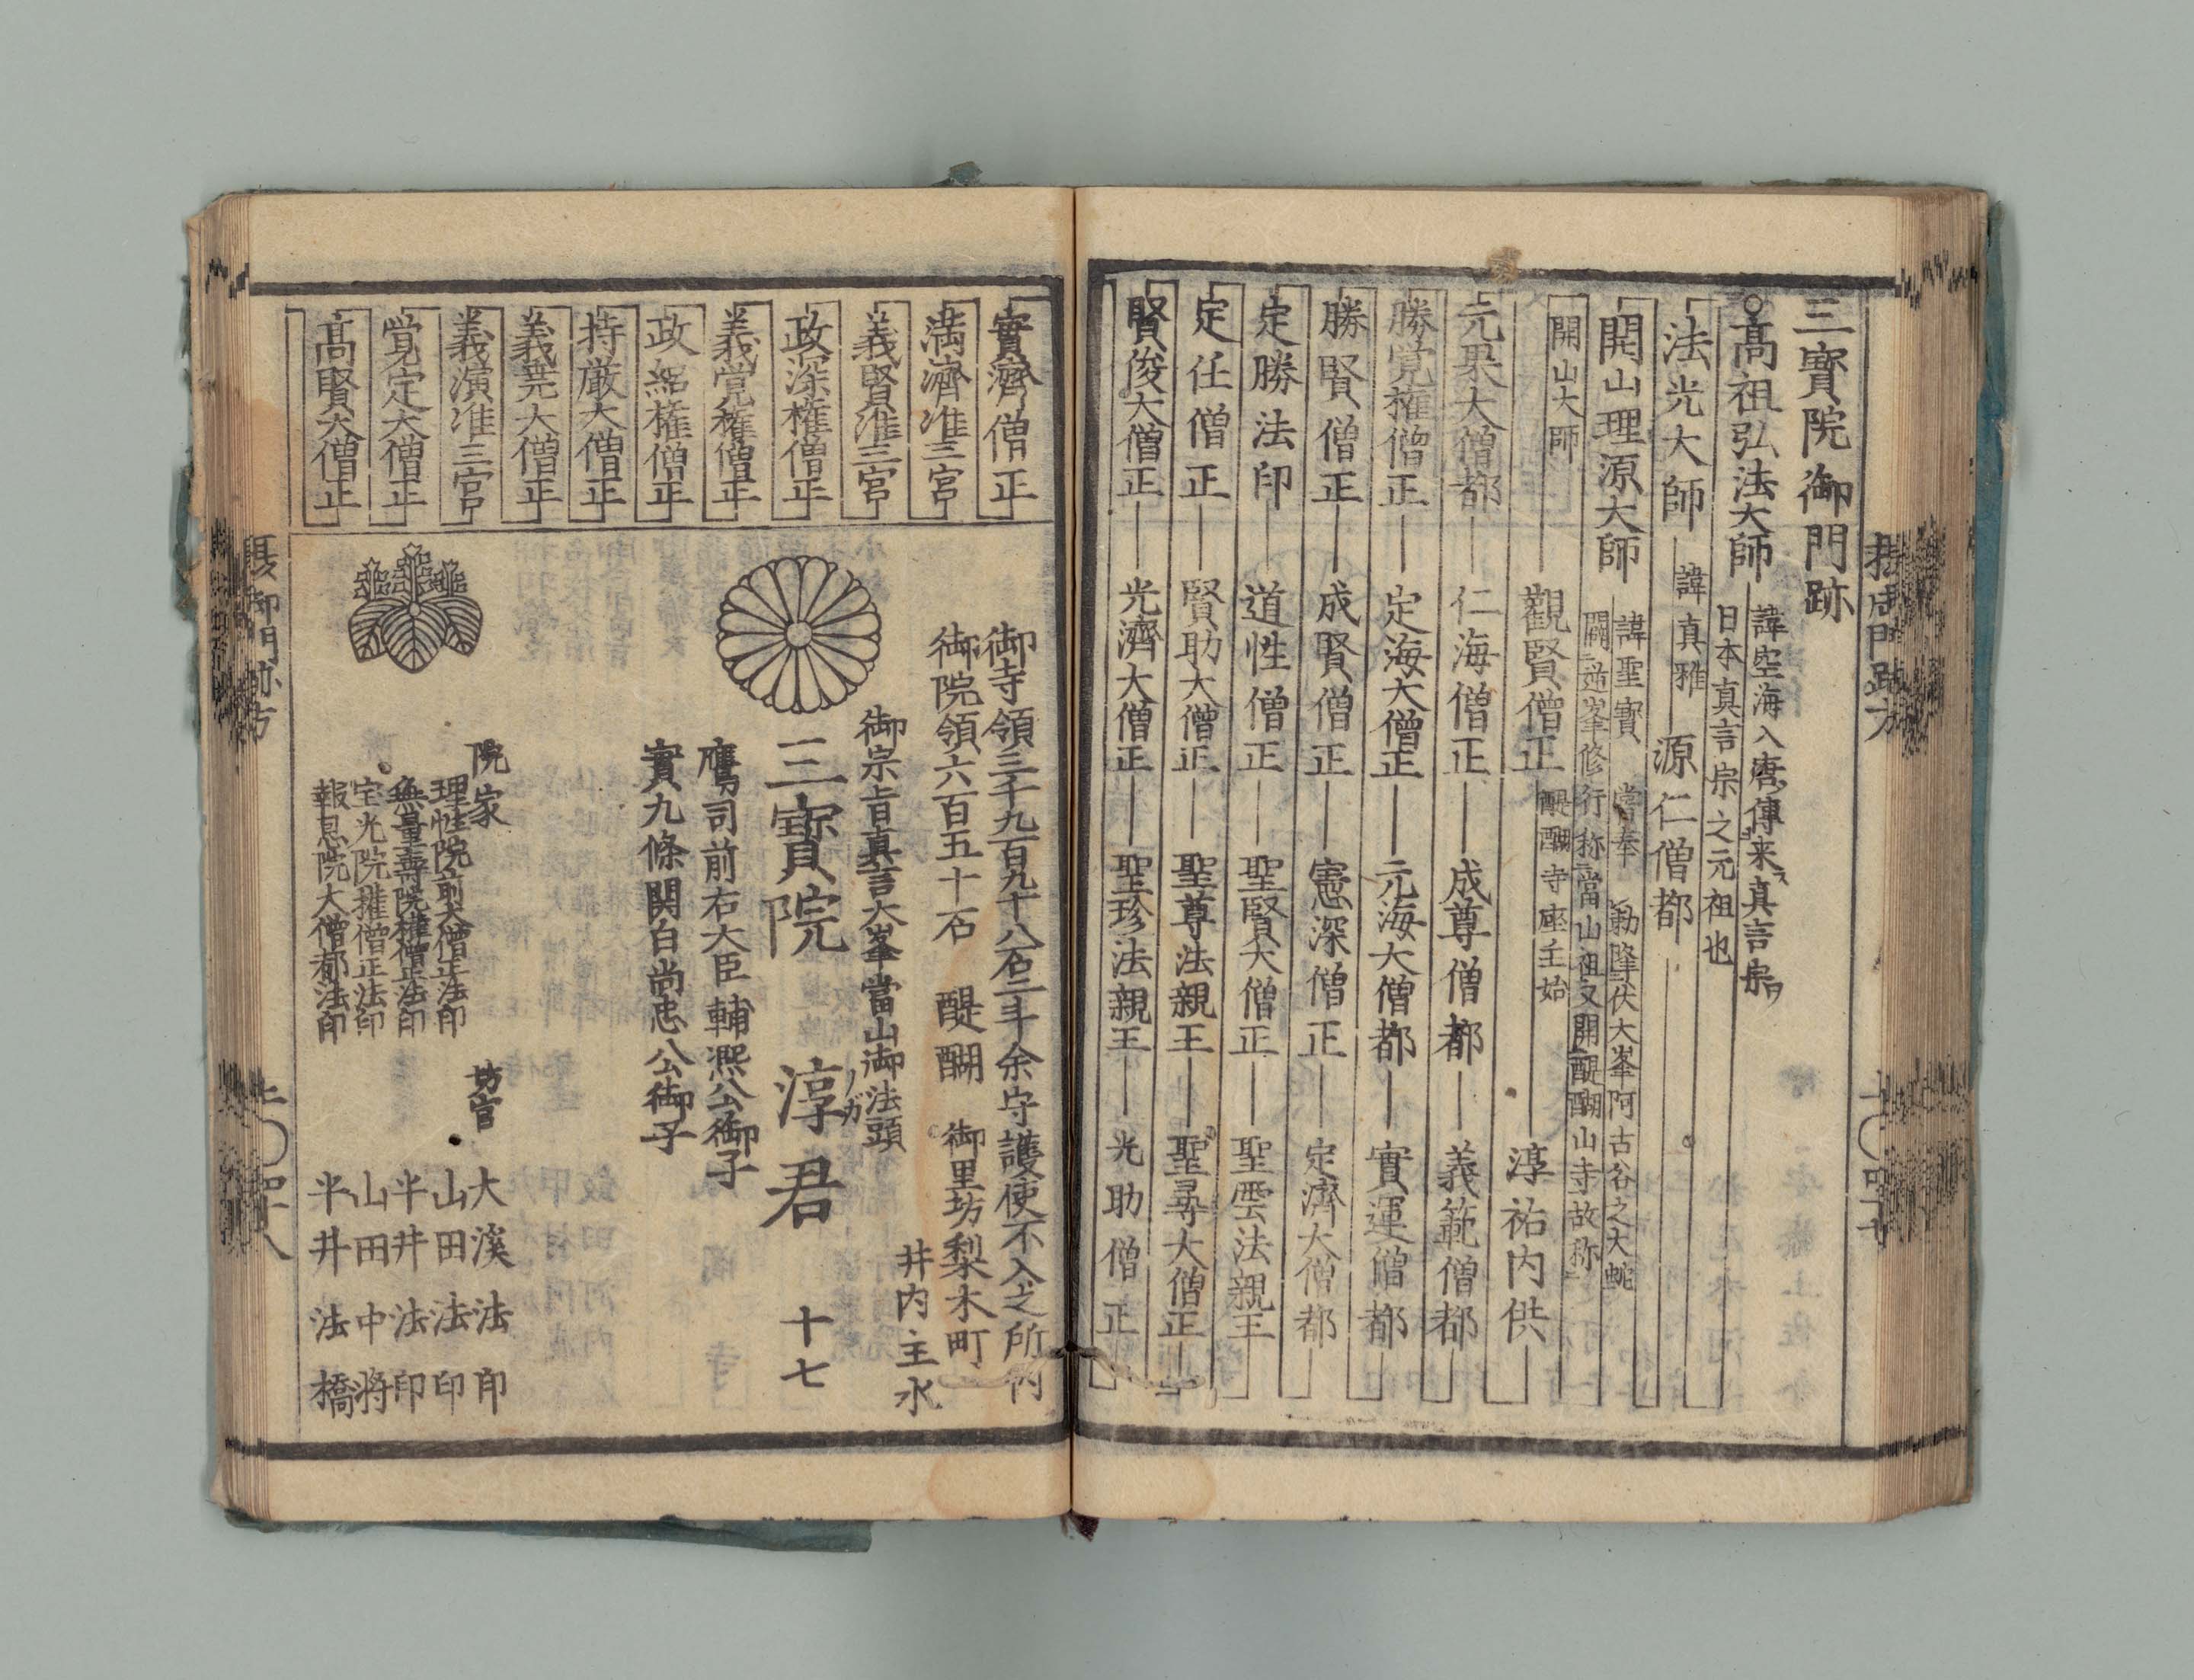 三寳院御門跡
○高祖弘法大師
諱空海入唐傳来真言宗
日本真言宗之元祖也
法光大師 諱真雅 源仁僧都
開山理源大師
諱聖寳 嘗奉 勅降伏大峯阿古谷之大蛇
開逆峯修行称當山祖又開醍醐山寺故称
開山大師
觀賢僧正 醍醐寺座主始 淳祐内供
元杲大僧都 仁海僧正 成尊僧都 義範僧都
勝覚権僧正 定海大僧正 元海大僧都 實運僧都
勝賢僧正 成賢僧正 憲深僧正 定濟大僧都
定勝法印 道性僧正 聖賢大僧正 聖雲法親王
定任僧正 賢助大僧正 聖尊法親王 聖尋大僧正
賢俊大僧正 光濟大僧正 聖珍法親王 光助僧正
實濟僧正
満濟准三宮
義賢准三宮
政深権僧正
義覚権僧正
政紹権僧正
持厳大僧正
義堯大僧正
義演准三宮
覚定大僧正
高賢大僧正
御寺領三千九百九十八石二斗余守護使不入之所
御院領六百五十石 醍醐 御里坊梨木町
井内主水
御宗旨真言大峯當山御法頭
三寳院 淳君 十七
ノガ
鷹司前右大臣輔凞公御子
實九條関白尚忠公御子
院家
理性院前大僧正法印
無量壽院権僧正法印
宝光院権僧正法印
報恩院大僧都法印
坊官
大溪法印
山田法印
半井法印
山田中将
半井法橋
御門跡方
上○四十八